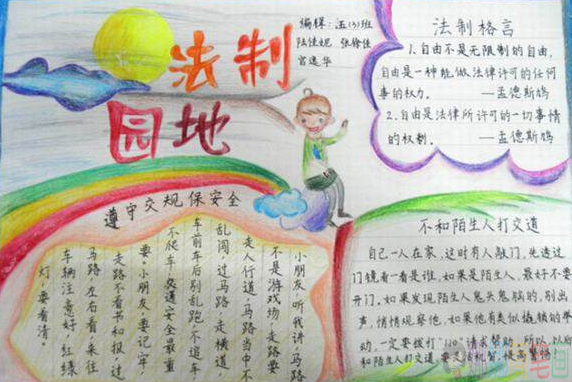 法制
园地
编辑:五(3)班
陆佳妮 张修佳
宫逸华
法制格言
1.自由不是无限制的自由,
自由是一种能做法律许可的任何
事的权力。 —孟德斯鸠
2.自由是法律所许可的一切事情
的权制。 —孟德斯鸠
遵守交规保安全
小朋友,听我讲,马路
不是游戏场,走路要
走人行道,马路当中不
乱闯,过马路,走横道
车前车后别乱跑,不追车
不爬车,交通安全最重
要。小朋友,要记牢,
走路不看书和报,过
马路,左右看,来往
车辆注意好,红绿
灯,要看清。
不和陌生人打交道
自己一人在家,这时有人敲门,先透过
门镜看一看是谁,如果是陌生人,最好不要
开门,如果发现陌生人鬼头鬼脑的,别出
声,悄悄观察他,如果他有类似撬锁的举
动,一定要拨打"110"请求帮助。所以,以后
和陌生人打交道,要灵活机智,提高警惕